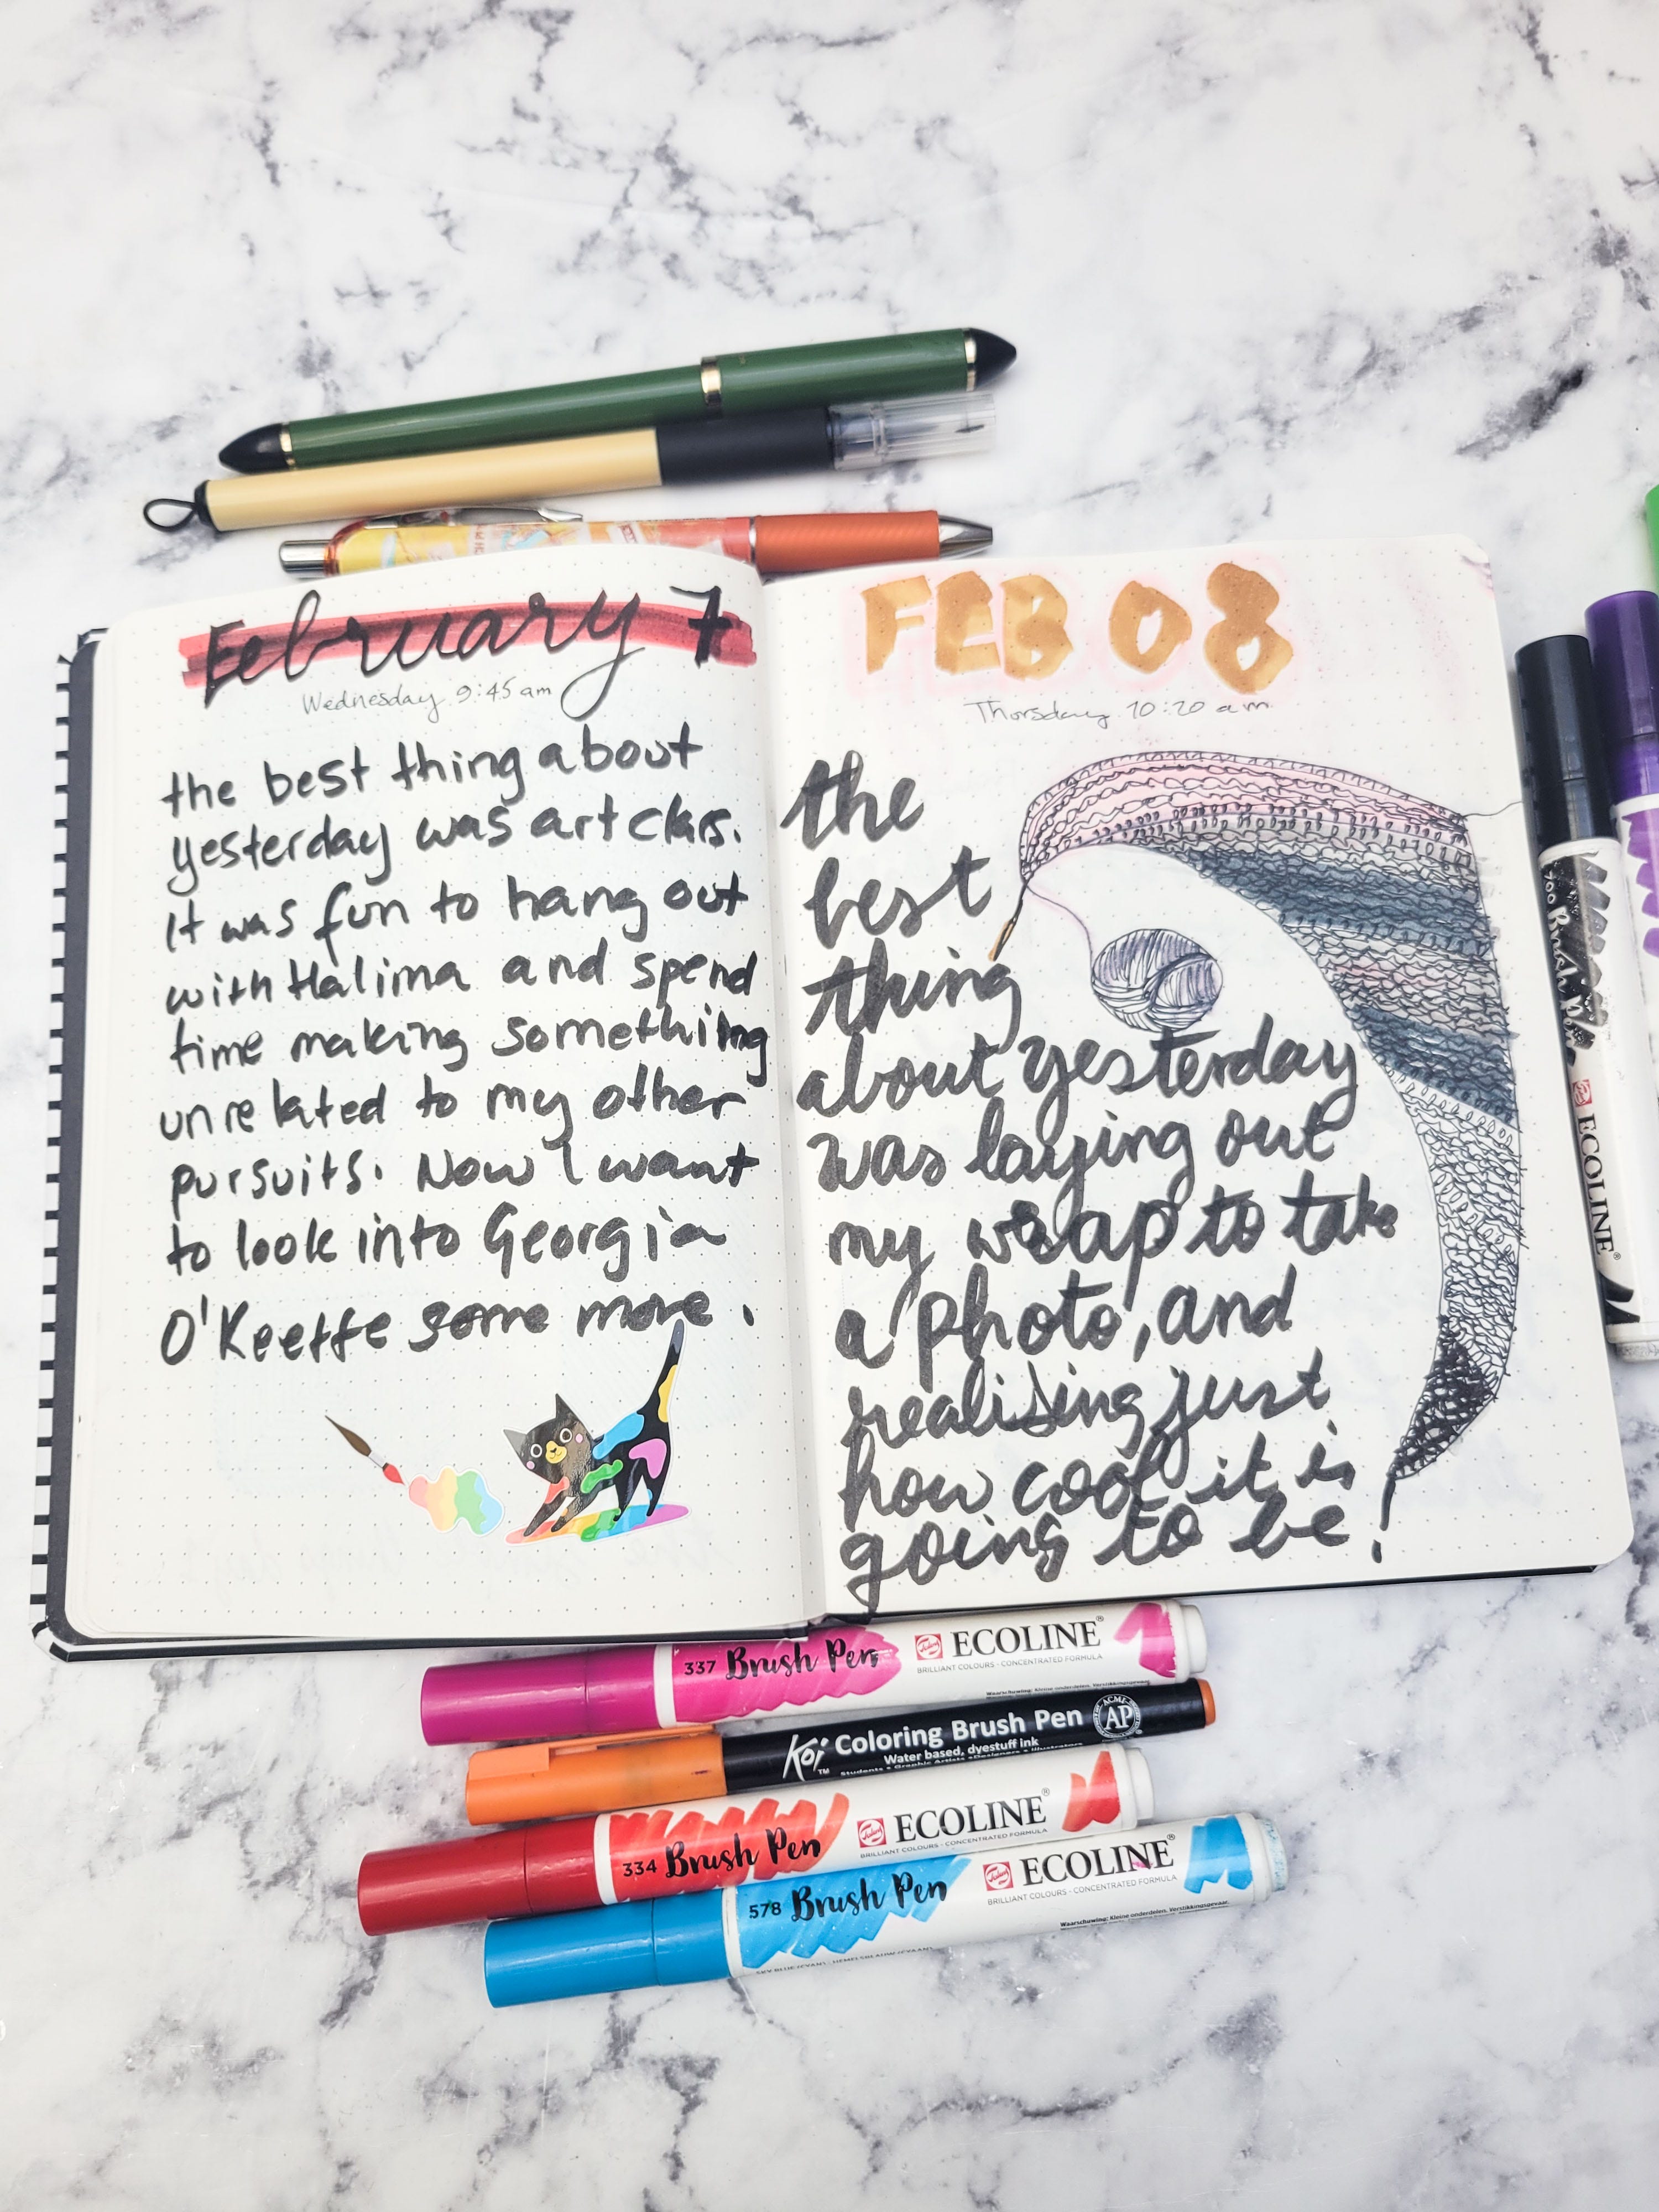 February 7
Wednesday 9:45 am
the best thing about
yesterday was art class.
It was fun to hang out
with Halima and spend
time making something
unrelated to my other
pursuits. Now I want
to look into Georgia
O'Keeffe some more.
FEB 08
Thorsday 10:20 am
the
best
thing
about yesterday
was laying out
my wrap to take
a photo, and
realising just
how cool it is
going to be!
337 Brush Pen
ECOLINE®
BRILLIANT COLOURS - CONCENTRATED FORMULA
Koi™ Coloring Brush Pen
Water based, dyestuff ink
Students • Graphic Artists • Designers • Illustrators
ACMI
AP
334 Brush Pen
ECOLINE®
BRILLIANT COLOURS - CONCENTRATED FORMULA
578 Brush Pen
ECOLINE®
BRILLIANT COLOURS - CONCENTRATED FORMULA
Waarschuwing: Kleine onderdelen. Verstikkingsgevaar.
700 Brush Pen
ECOLINE®